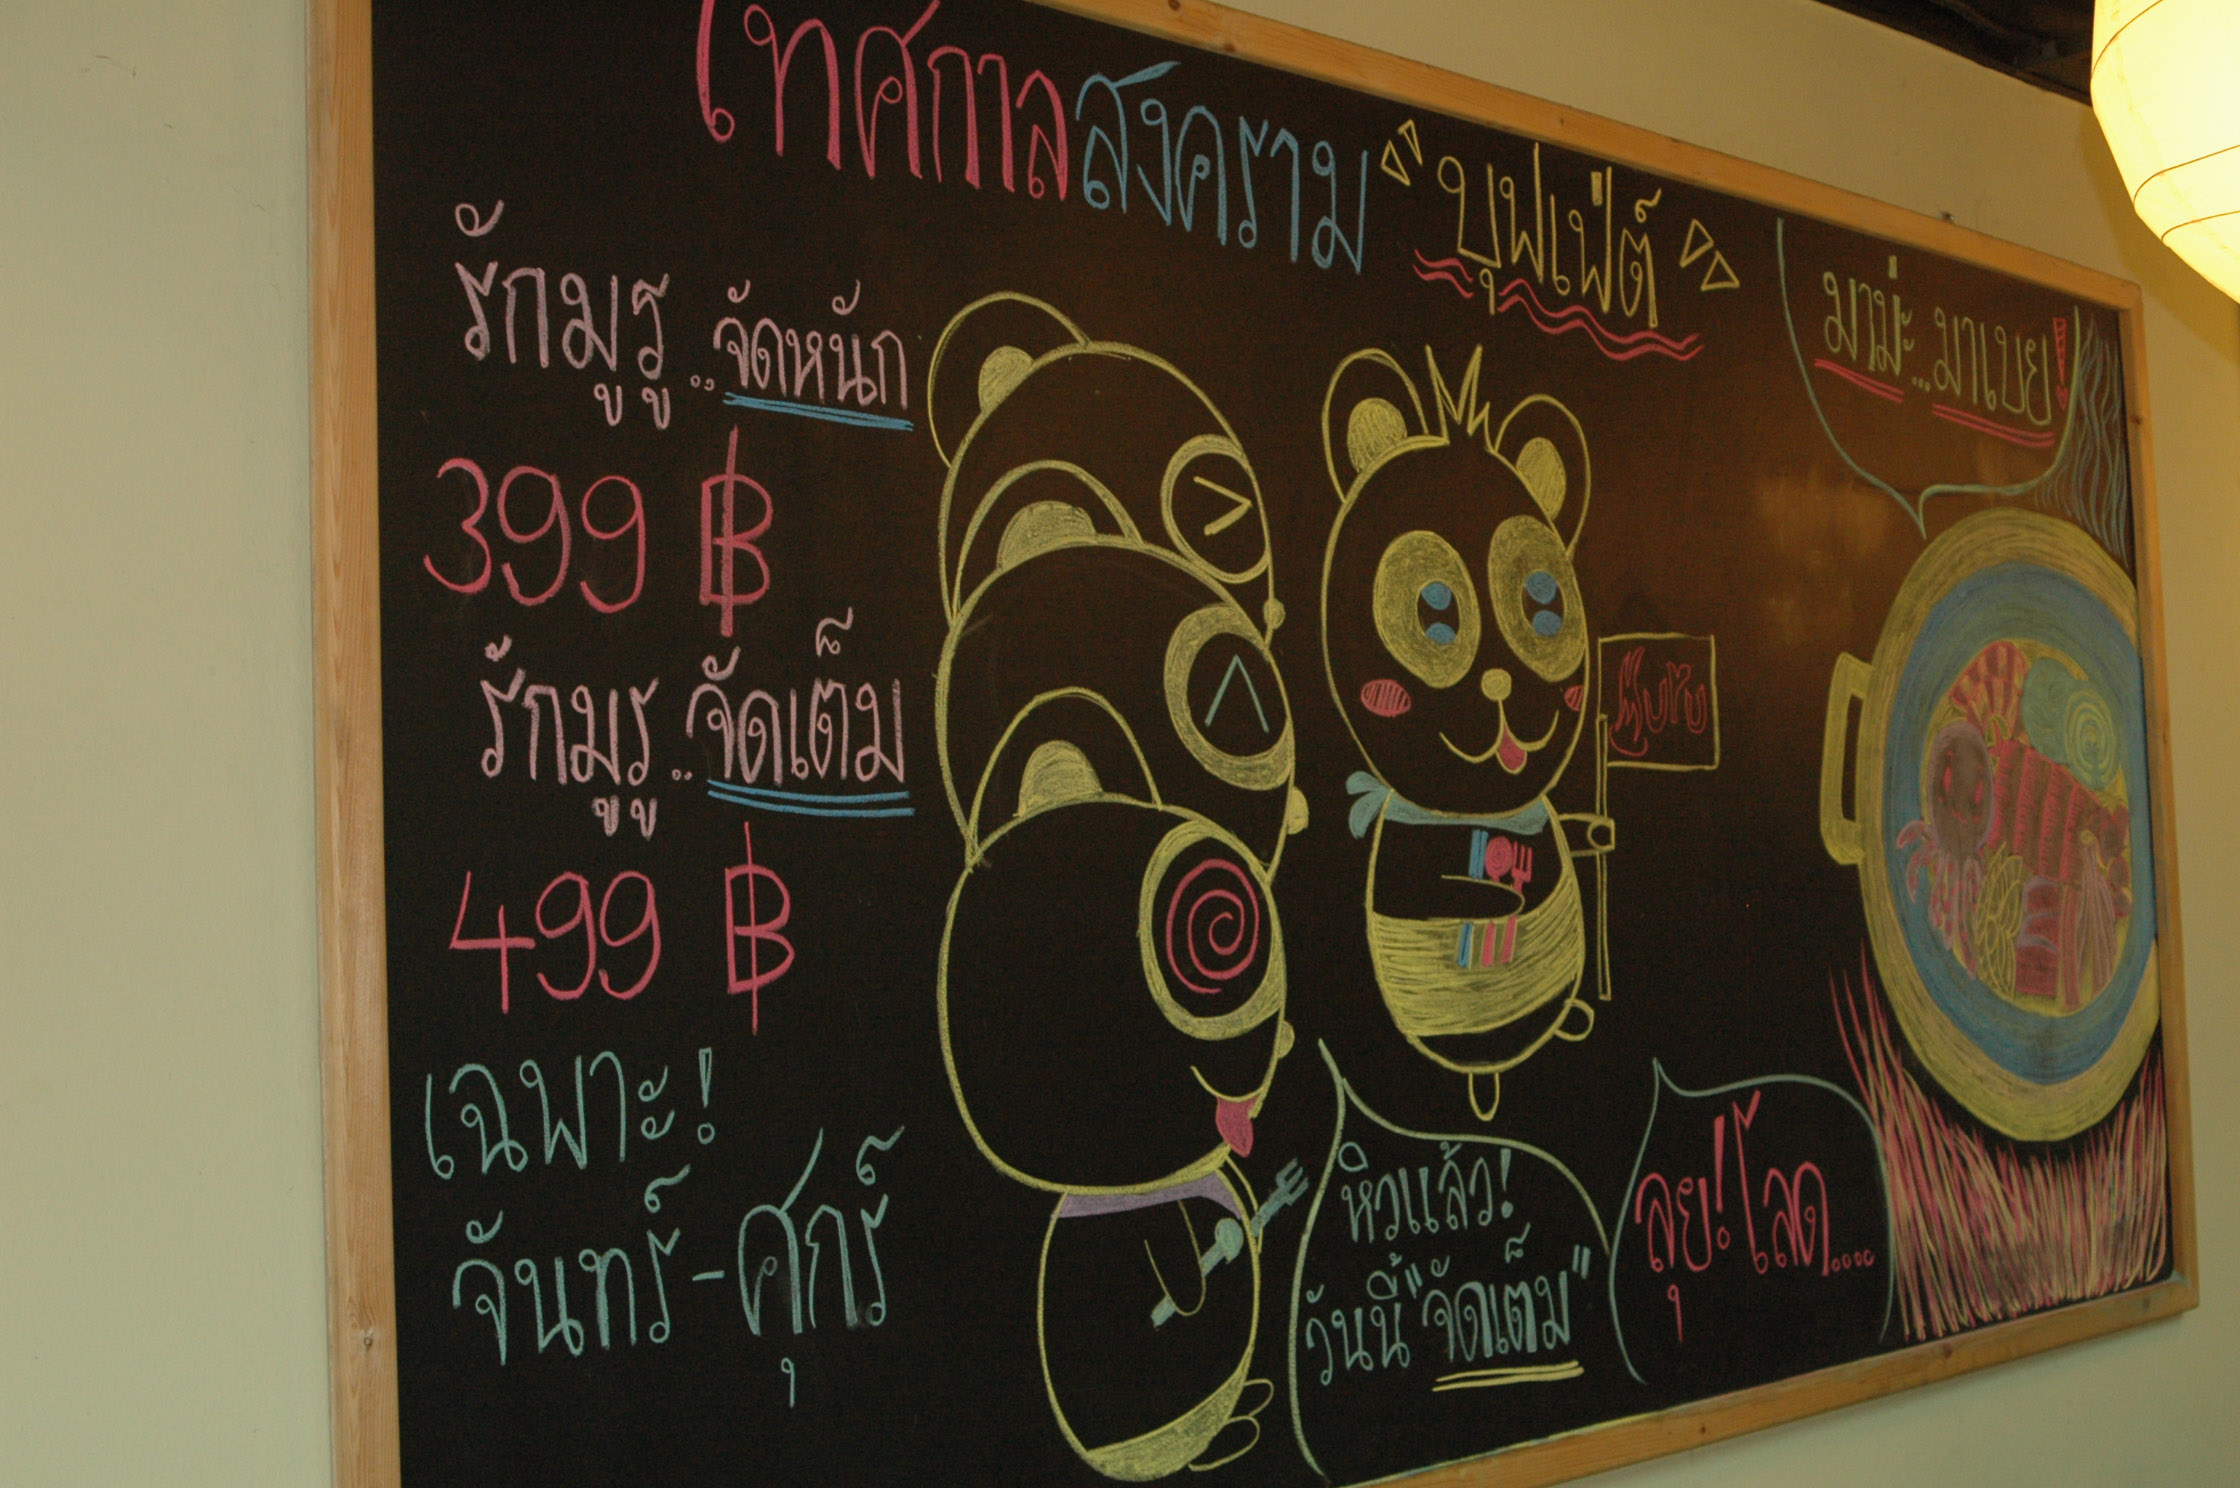 เทศกาลสงคราม "บุฟเฟ่ต์"
รักมูรู..จัดหนัก
399 ฿
รักมูรู..จัดเต็ม
499 ฿
เฉพาะ!
จันทร์-ศุกร์
มาม่ะ...มาเบย!
Muru
หิวแล้ว!
วันนี้"จัดเต็ม"
ลุย!โลด....